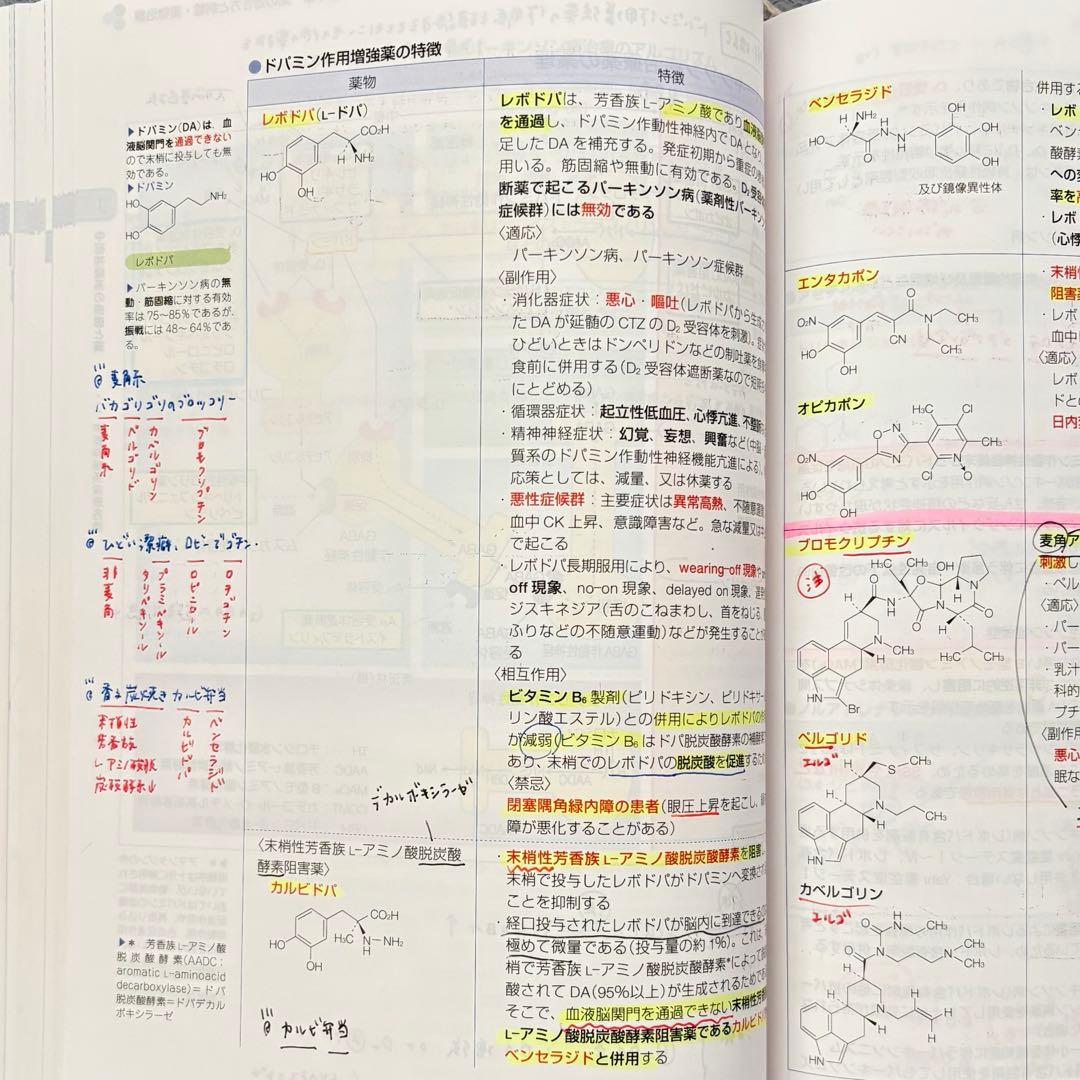 ●ドパミン作用増強薬の特徴
薬物
特徴
▶ドパミン(DA)は、血
液脳関門を通過できない
ので末梢に投与しても無
効である。
▶ドパミン
HO
NH₂
HO
レボドパ
▶パーキンソン病の無
動・筋固縮に対する有効
率は75〜85%であるが、
振戦には48〜64%であ
る。
@麦角系
バカゴリゴリのブロッコリー
麦角系
ペルゴリド
カベルゴリン
ブロモクリプチン
@ひどい潔癖、ロピーでゴチン.
非麦角
タリペキソール
プラミペキソール
ロピニロール
ロチゴチン
@香る炭焼きカルビ弁当
末梢性
芳香族
L-アミノ酸脱
炭酸酵素
カルビドパ
ベンセラジド
▶* 芳香族L-アミノ酸
脱炭酸酵素(AADC:
aromatic L-aminoacid
decarboxylase)=ドパ
脱炭酸酵素=ドパデカル
ボキシラーゼ
レボドパ(L-ドパ)
CO₂H
H
NH₂
HO
OH
レボドパは、芳香族L-アミノ酸であり血液
を通過し、ドパミン作動性神経内でDAとなり
足したDAを補充する。発症初期から重症の
用いる。筋固縮や無動に有効である。D₂受容
断薬で起こるパーキンソン病(薬剤性パーキン
症候群)には無効である
〈適応〉
パーキンソン病、パーキンソン症候群
〈副作用〉
・消化器症状:悪心・嘔吐(レボドパから生成
たDAが延髄のCTZのD₂受容体を刺激)。
ひどいときはドンペリドンなどの制吐薬を食
食前に併用する(D₂受容体遮断薬なので短期
にとどめる)
・循環器症状:起立性低血圧、心悸亢進、不整脈
・精神神経症状:幻覚、妄想、興奮など(中脳
質系のドパミン作動性神経機能亢進による)。
応策としては、減量、又は休薬する
・悪性症候群:主要症状は異常高熱、不随意運動
血中CK上昇、意識障害など。急な減量又は中
で起こる
・レボドパ長期服用により、wearing-off現象や
off現象、no-on現象、delayed on現象、
ジスキネジア(舌のこねまわし、首をねじる、
ふりなどの不随意運動)などが発生すること
る
〈相互作用〉
ビタミンB₆製剤(ピリドキシン、ピリドキサー
リン酸エステル)との併用によりレボドパの作
が減弱(ビタミンB₆はドパ脱炭酸酵素の補酵素
あり、末梢でのレボドパの脱炭酸を促進するた
〈禁忌〉
閉塞隅角緑内障の患者(眼圧上昇を起こし、
障が悪化することがある)
デカルボキシラーゼ
〈末梢性芳香族L-アミノ酸脱炭酸
酵素阻害薬〉
カルビドパ
CO₂H
H₃C
N-NH₂
H
HO
OH
@カルビ弁当
・末梢性芳香族L-アミノ酸脱炭酸酵素を阻害
末梢で投与したレボドパがドパミンへ変換され
ことを抑制する
・経口投与されたレボドパが脳内に到達できる
極めて微量である(投与量の約1%)。これは、
梢で芳香族L-アミノ酸脱炭酸酵素*によって
酸されてDA(95%以上)が生成されるためであ
そこで、血液脳関門を通過できない末梢性芳香
L-アミノ酸脱炭酸酵素阻害薬であるカルビドパ
ベンセラジドと併用する
ベンセラジド
H NH₂
HO
O
OH
OH
OH
及び鏡像異性体
併用す
・レボ
ベン
酸酵素
への変
率を高
・レボ
(心悸
エンタカポン
O₂N
HO
OH
O
CN
N
CH₃
CH₃
・末梢性
阻害薬
・レボ
血中
〈適応〉
レボ
ドとの
日内
オピカポン
H₃C
Cl
CH₃
Cl
O₂N
HO
OH
ブロモクリプチン
注
麦角ア
刺激し
・ペル
〈適応〉
・パー
・パー
・乳汁
科的
プチ
〈副作用
悪心
眠な
CH₃
H₃C
CH₃
Br
HN
ペルゴリド
エルゴ
S
CH₃
CH₃
HN
カベルゴリン
エルゴ
CH₃
CH₃
CH₃
HN